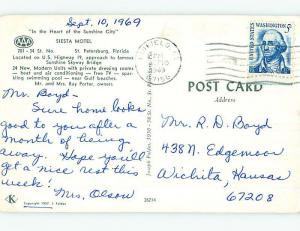 Sept. 10, 1969
"In the Heart of the Sunshine City"
AAA
SIESTA MOTEL
701 - 34 St. No. St. Petersburg, Florida
Located on U.S. Highway 19, approach to famous
Sunshine Skyway Bridge
24 New, Modern Units with private dressing rooms
heat and air conditioning — free TV — spa-
ling swimming pool — near Gulf beaches.
Mr. and Mrs. Ray Porter, owners
Mr. Boyd -
Sure home looks
good to you after a
month of being
away. Hope you'll
get a nice rest this
week!
Mrs. Olson
K
Copyright 1967
35214
UNITED STATES
WASHINGTON
5¢
POST CARD
Address
Mr. R. D. Boyd
438 N. Edgemoor
Wichita, Kansas
67208